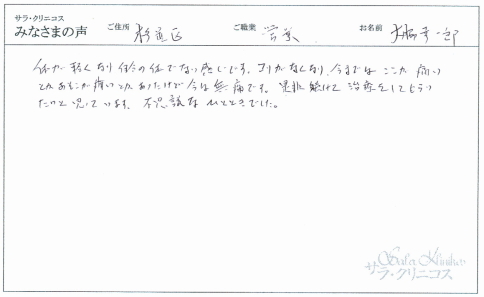 サラ・クリニコス
みなさまの声 ご住所 杉並区 ご職業 営業 お名前 大脇 一郎
体が軽くなり自分の体でない感じです。コリがなくなり、今までは ここが痛い
とかあそこが痛いとかあったけど今は無痛です。是非続けて治療をしてもらい
たいと思っています。不思議なひとときでした。
Sala Klinikos
サラ・クリニコス